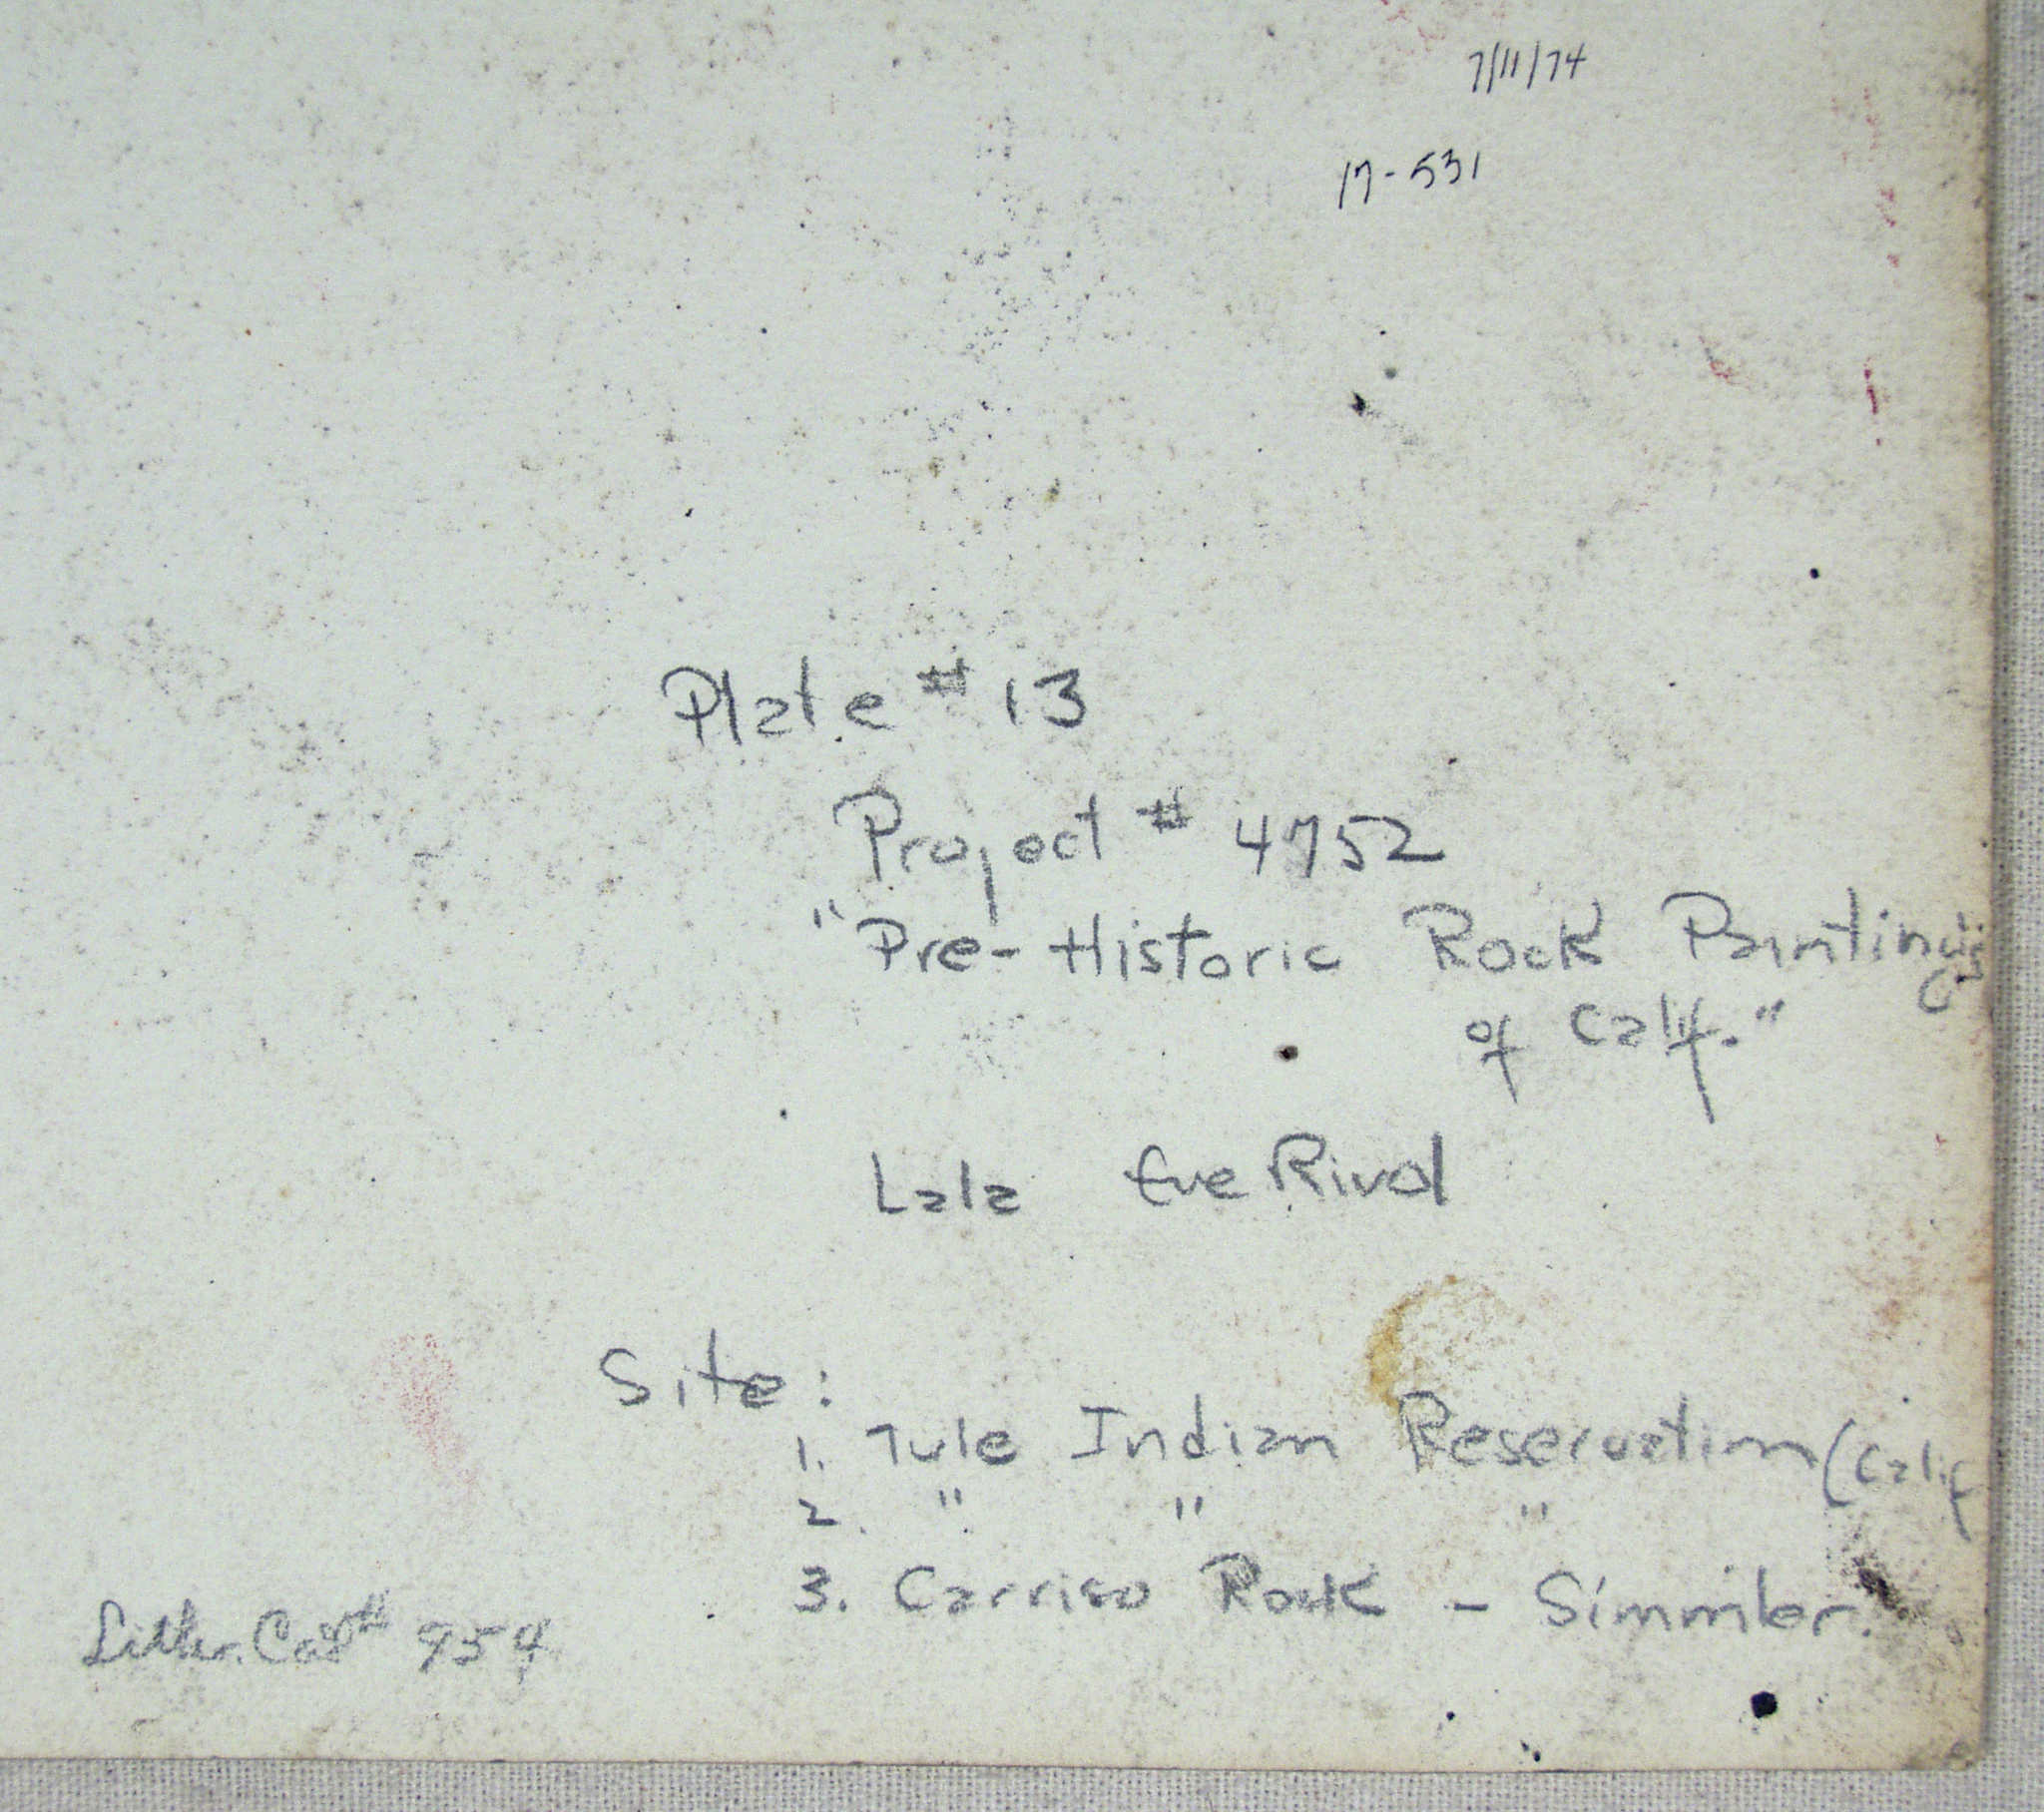 7/11/74
17-531
Plate #13
Project # 4752
"Pre-Historic Rock Paintings
of Calif."
Lala Eve Rivol
Site:
1. Tule Indian Reservation (Calif
2. " " "
3. Carriso Rock - Simmler.
Cat# 954